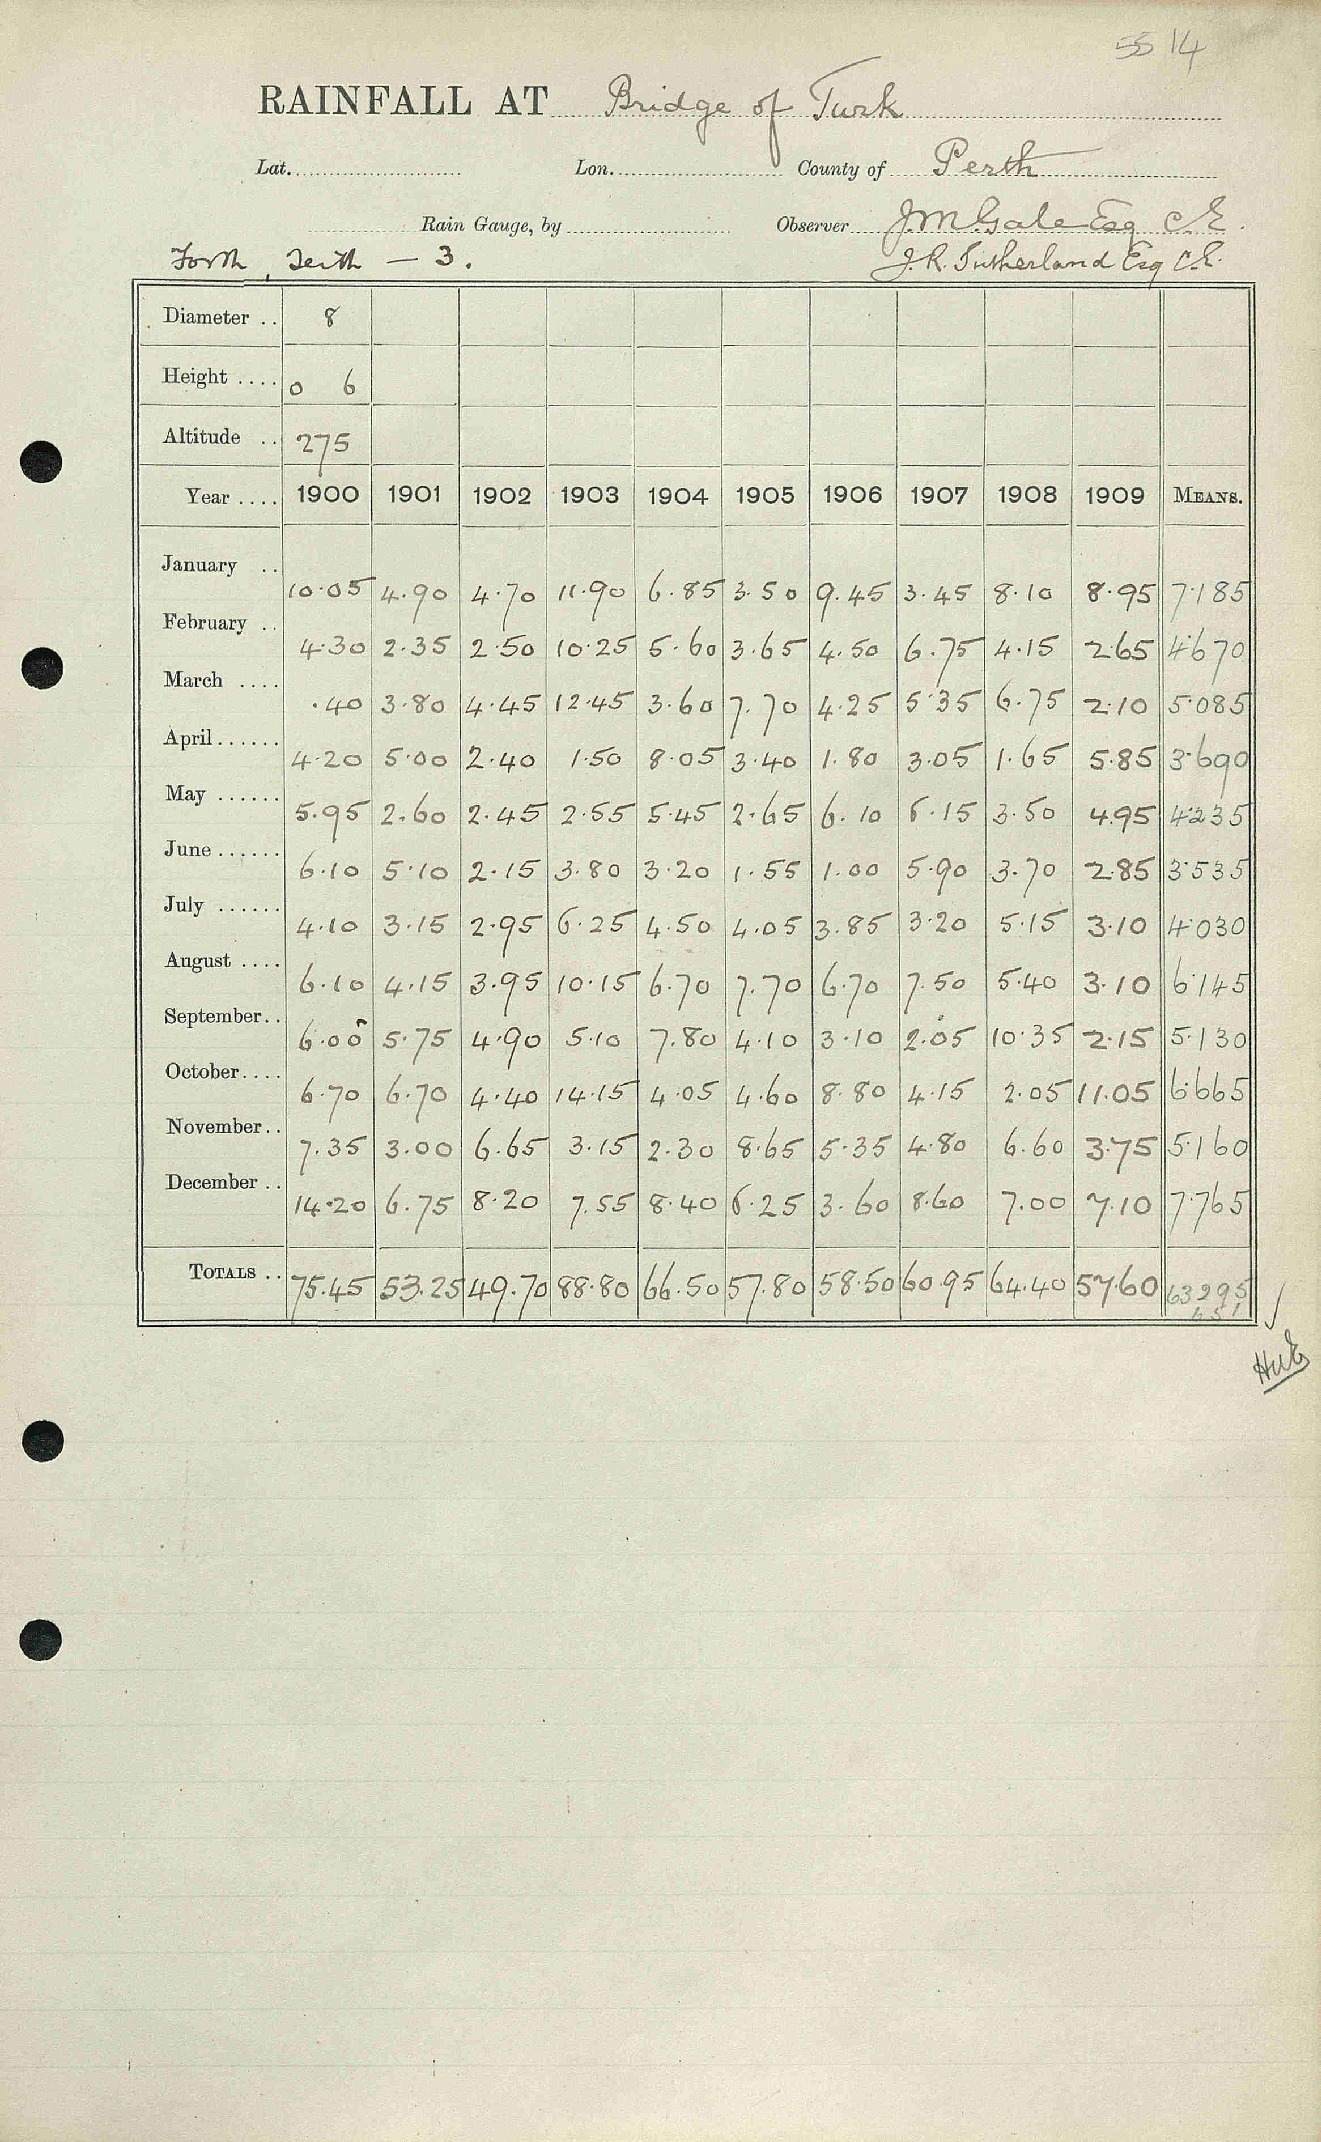 55 14
RAINFALL AT Bridge of Turk
Lat. Lon. County of Perth
Rain Gauge, by Observer J.M. Gale Esq C.E.
Forth, Teith — 3. J.R. Sutherland Esq C.E.
Diameter .. 8
Height .... 0 6
Altitude .. 275
Year .... 1900 1901 1902 1903 1904 1905 1906 1907 1908 1909 MEANS.
January .. 10.05 4.90 4.70 11.90 6.85 3.50 9.45 3.45 8.10 8.95 7.185
February .. 4.30 2.35 2.50 10.25 5.60 3.65 4.50 6.75 4.15 2.65 4.670
March .... .40 3.80 4.45 12.45 3.60 7.70 4.25 5.35 6.75 2.10 5.085
April ...... 4.20 5.00 2.40 1.50 8.05 3.40 1.80 3.05 1.65 5.85 3.690
May ...... 5.95 2.60 2.45 2.55 5.45 2.65 6.10 6.15 3.50 4.95 4.235
June ...... 6.10 5.10 2.15 3.80 3.20 1.55 1.00 5.90 3.70 2.85 3.535
July ...... 4.10 3.15 2.95 6.25 4.50 4.05 3.85 3.20 5.15 3.10 4.030
August .... 6.10 4.15 3.95 10.15 6.70 7.70 6.70 7.50 5.40 3.10 6.145
September .. 6.00 5.75 4.90 5.10 7.80 4.10 3.10 2.05 10.35 2.15 5.130
October .... 6.70 6.70 4.40 14.15 4.05 4.60 8.80 4.15 2.05 11.05 6.665
November .. 7.35 3.00 6.65 3.15 2.30 8.65 5.35 4.80 6.60 3.75 5.160
December .. 14.20 6.75 8.20 7.55 8.40 6.25 3.60 8.60 7.00 7.10 7.765
TOTALS .. 75.45 53.25 49.70 88.80 66.50 57.80 58.50 60.95 64.40 57.60 63295